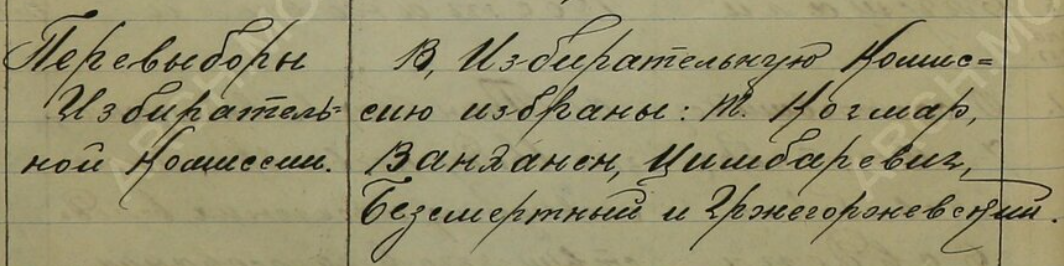 Перевыборы
Избиратель-
ной Комиссии.
В, Избирательную Комис=
сию избраны: т. Когмар,
Ванханен, Цимбаревич,
Безсмертный и Гржегоржевский.